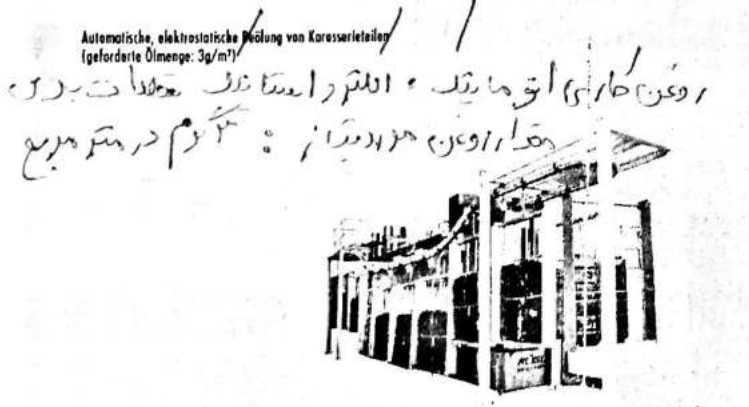 Automatische, elektrostatische Beölung von Karosserieteilen
(geforderte Ölmenge: 3g/m²)
روغن کاری اتوماتیک ، الکترواستاتیک قطعات بدنه
مقدار روغن مورد نیاز : ۳ گرم در متر مربع